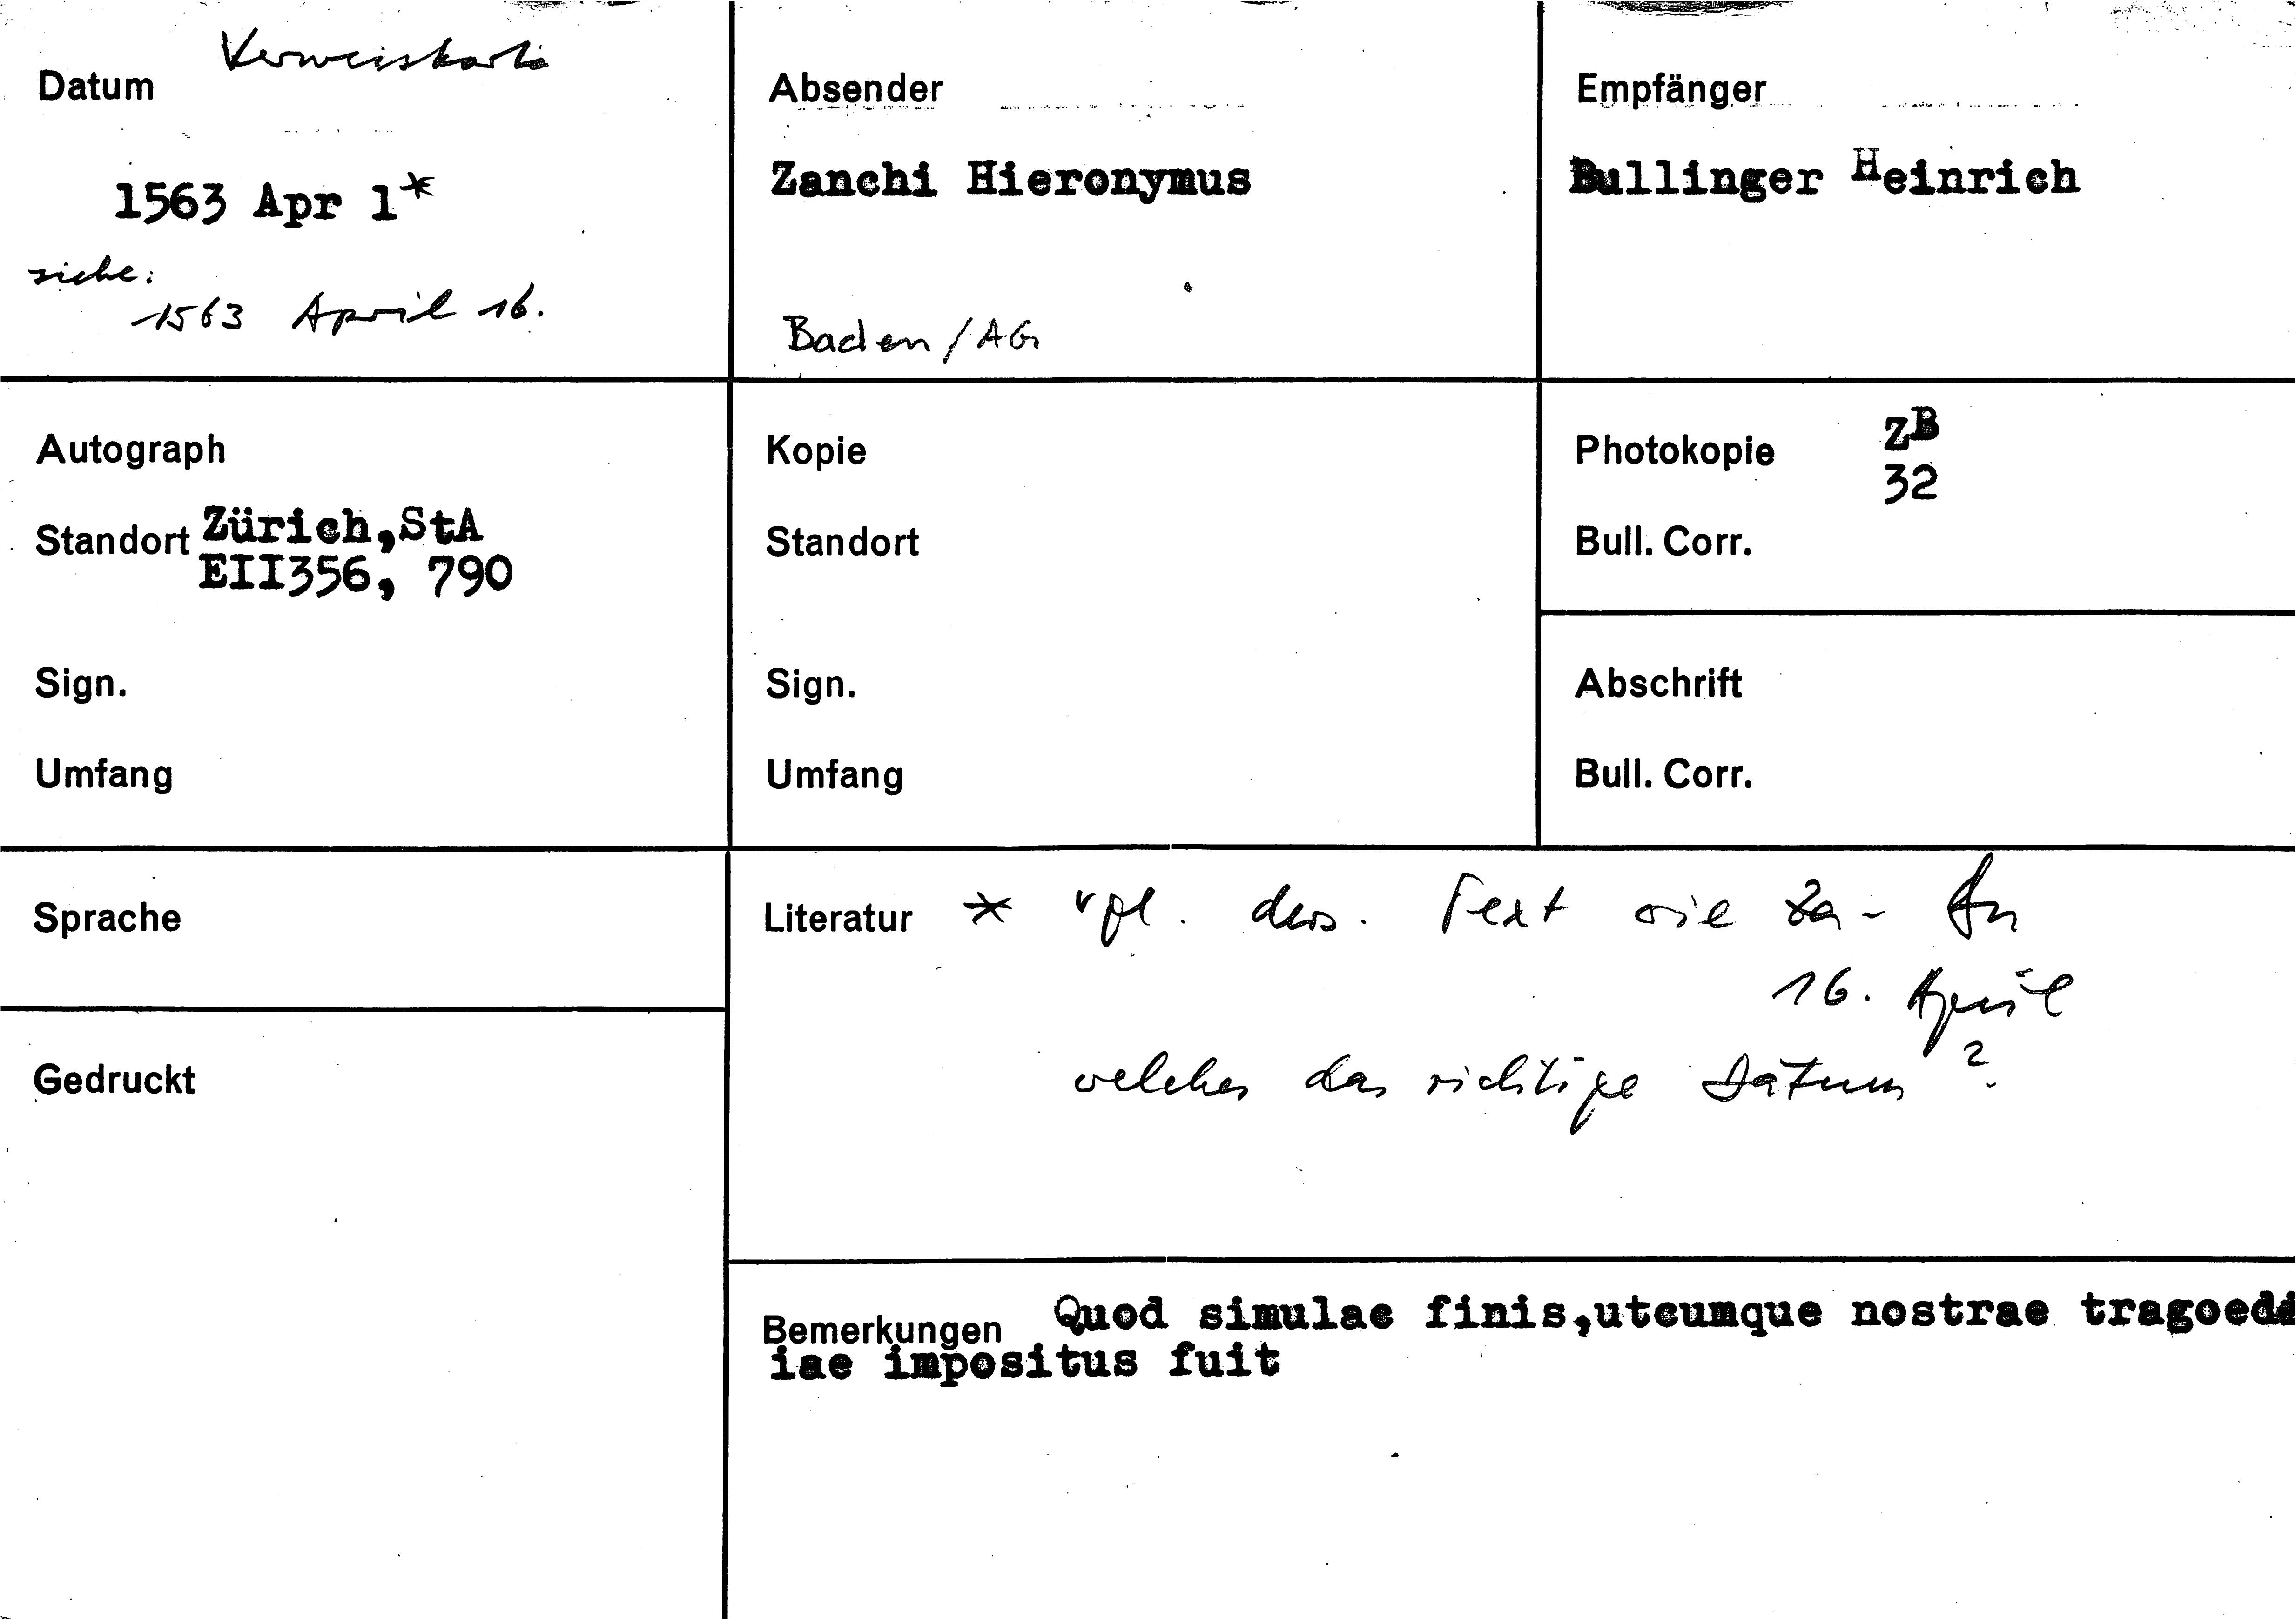 Verweiskarte
Datum
1563 Apr 1*
siehe:
1563 April 16.
Absender
Zanchi Hieronymus
Baden/AG
Empfänger
Bullinger Heinrich
Autograph
Standort Zürich,StA
EII356, 790
Sign.
Umfang
Kopie
Standort
Sign.
Umfang
Photokopie ZB
32
Bull. Corr.
Abschrift
Bull. Corr.
Sprache
Gedruckt
Literatur * vgl. ders. Text wie Za -
16. April
welches das richtige Datum?
Bemerkungen Quod simulac finis,utcumque nostrae tragoed
iae impositus fuit